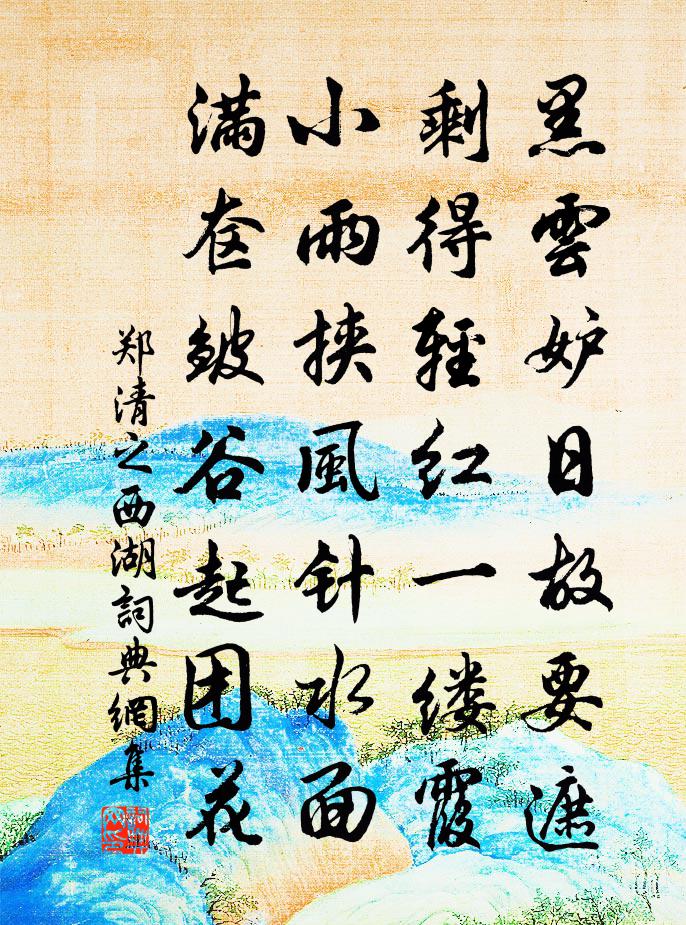 黑雲妒日故要遮
剩得輕红一缕霞
小雨挟風针水面
满奁皱谷起团花
郑清之西湖詞典網集